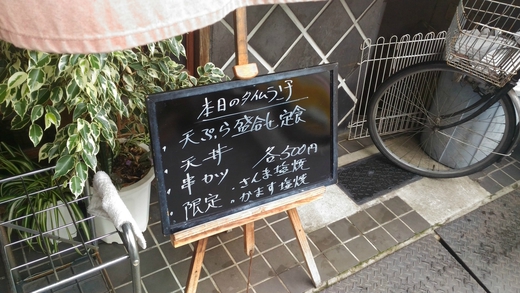 本日のタイムランチ
・天ぷら盛合せ定食
・天丼
・串カツ 各500円
・限定 ・さんま塩焼
・かます塩焼